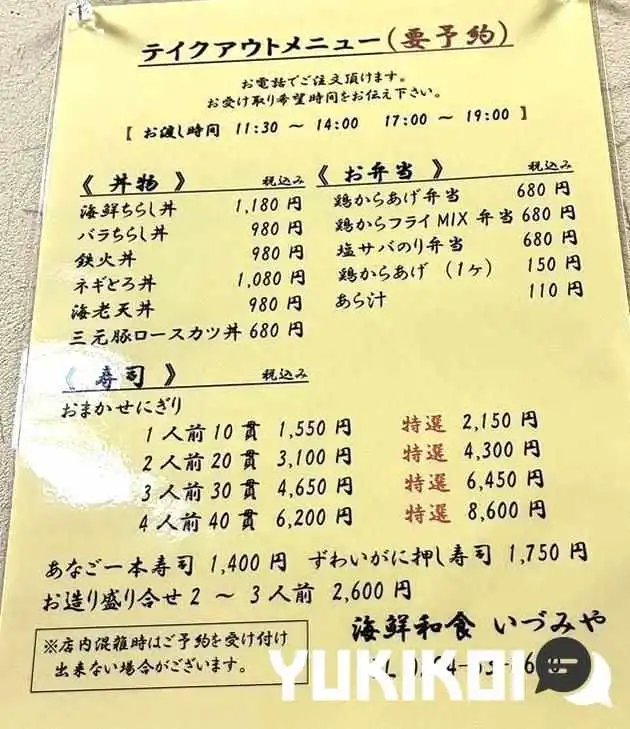 テイクアウトメニュー(要予約)
お電話でご注文頂けます。
お受け取り希望時間をお伝え下さい。
【 お渡し時間 11:30 ～ 14:00 17:00 ～ 19:00 】
《 丼物 》 税込み
海鮮ちらし丼 1,180 円
バラちらし丼 980 円
鉄火丼 980 円
ネギとろ丼 1,080 円
海老天丼 980 円
三元豚ロースカツ丼 680 円
《 お弁当 》 税込み
鶏からあげ弁当 680 円
鶏からフライMIX 弁当 680 円
塩サバのり弁当 680 円
鶏からあげ (1ヶ) 150 円
あら汁 110 円
《 寿司 》 税込み
おまかせにぎり
1 人前 10 貫 1,550 円 特選 2,150 円
2 人前 20 貫 3,100 円 特選 4,300 円
3 人前 30 貫 4,650 円 特選 6,450 円
4 人前 40 貫 6,200 円 特選 8,600 円
あなご一本寿司 1,400 円 ずわいがに押し寿司 1,750 円
お造り盛り合せ 2 ～ 3 人前 2,600 円
※店内混雑時はご予約を受け付け
出来ない場合がございます。
海鮮和食 いづみや
YUKIKOI